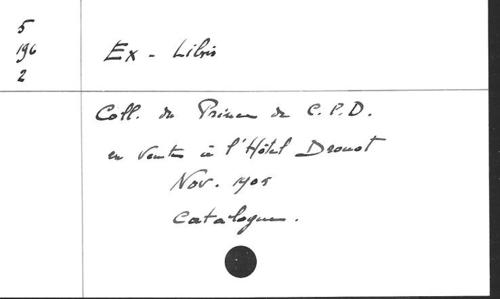 5
196
2
Ex-Libris
Coll. du Prince de C.P.D.
en vente à l'Hôtel Drouot
Nov. 1905
Catalogue.